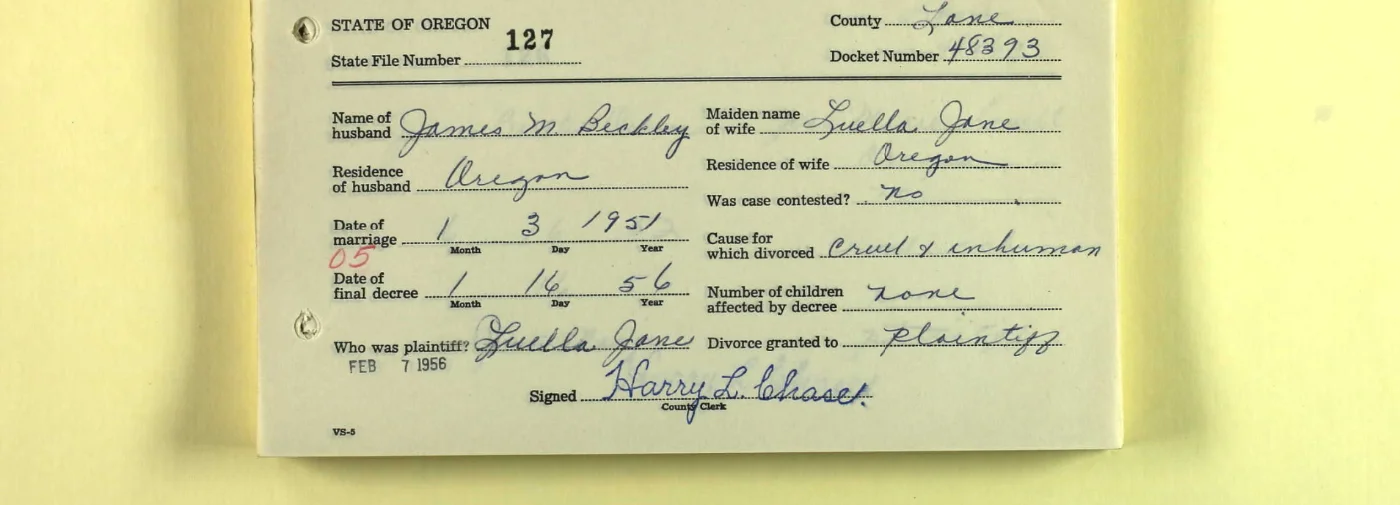 STATE OF OREGON
127
State File Number
County Lane
Docket Number 48393
Name of husband James M Beckley
Maiden name of wife Luella Jane
Residence of husband Oregon
Residence of wife Oregon
Was case contested? no
Date of marriage 1 3 1951
Month Day Year
05
Cause for which divorced Cruel & inhuman
Date of final decree 1 16 56
Month Day Year
Number of children affected by decree none
Who was plaintiff? Luella Jane
Divorce granted to plaintiff
FEB 7 1956
Signed Harry L. Chase.
County Clerk
VS-5